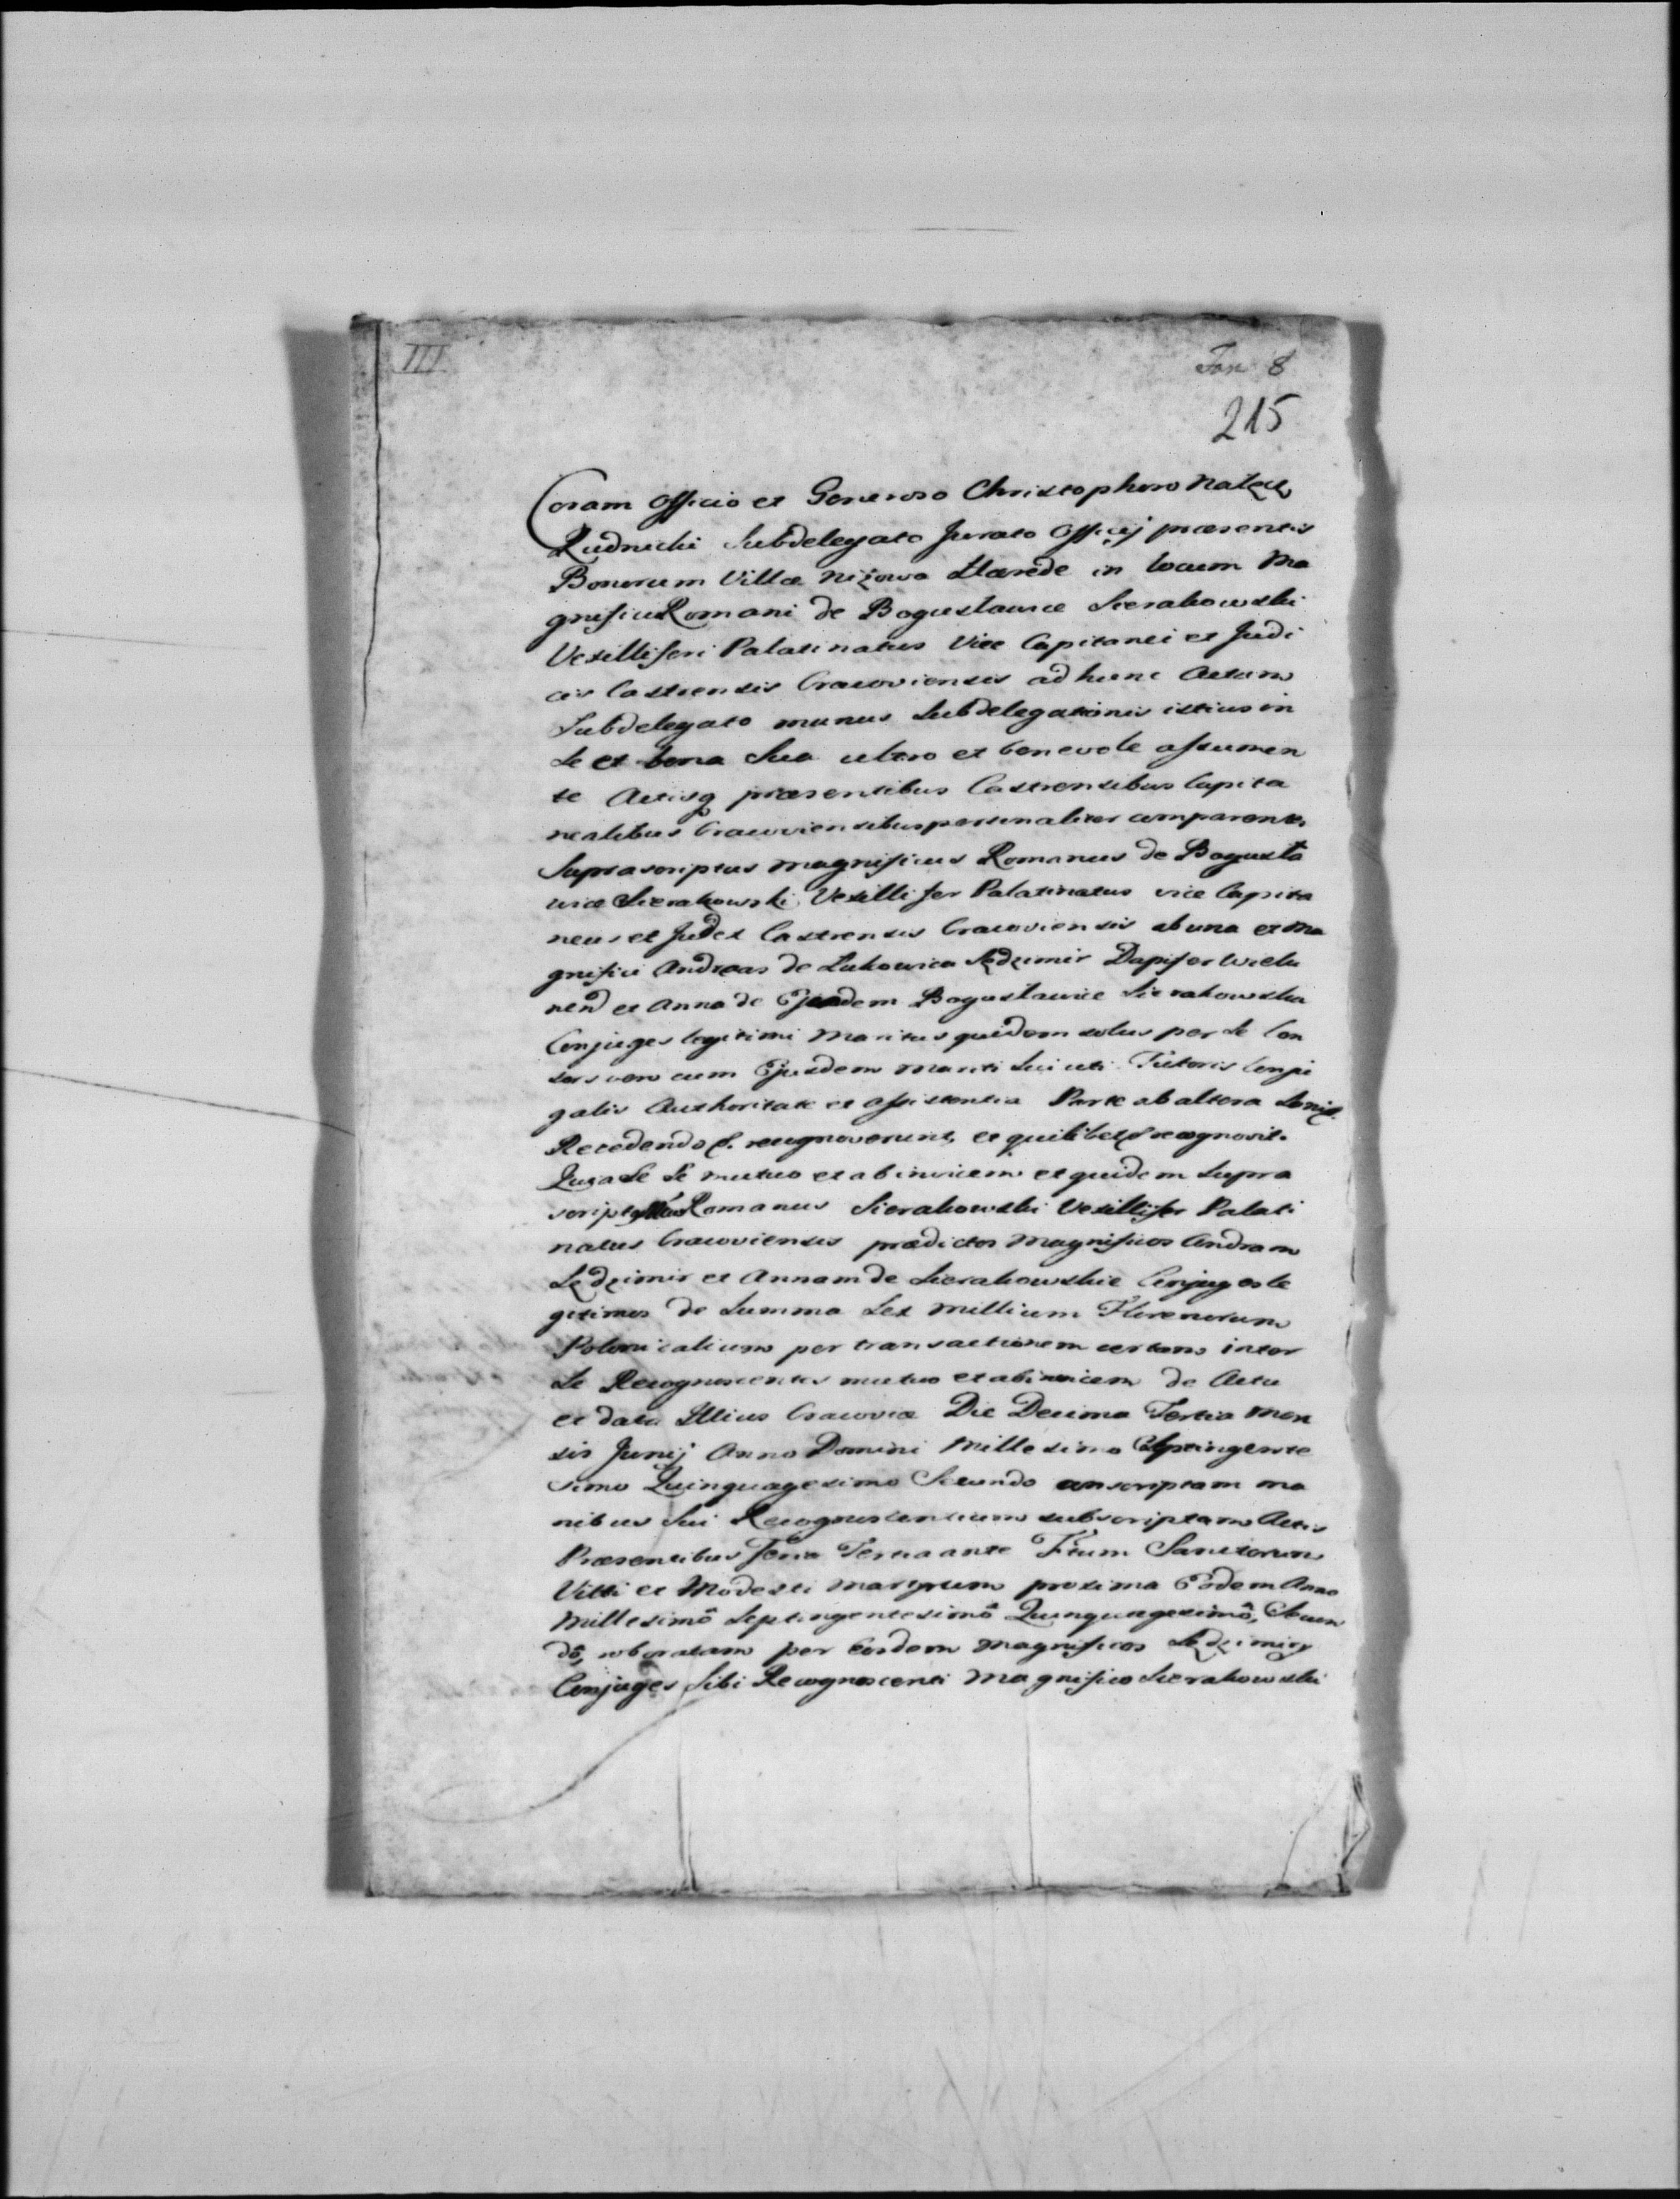 III
Fas 8
215
Coram Officio et Generoso Christophoro Natęcz
Rudnicki Subdelegato Jurato Officij præsentis
Bonorum Villæ Niżowa Hærede in locum Ma
gnifici Romani de Bogusławice Sierakowski
Vexilliferi Palatinatus Vice Capitanei et Judi
cis Castrensis Cracoviensis ad hunc Actum
Subdelegato munus Subdelegationis istius in
Se et bona Sua ultro et benevole assumen
te Actisq præsentibus Castrensibus Capita
nealibus Cracoviensibus personaliter comparentes
Suprascriptus Magnificus Romanus de Bogusła
wice Sierakowski Vexillifer Palatinatus vice Capita
neus et Judex Castrensis Cracoviensis ab una et Ma
gnifici Andreas de Łukowica Sędzimir Dapifer Wielu
nen et Anna de Ejsdem Bogusławice Sierakowska
Conjuges legitimi Maritus quidem solus per Se Con
sors vero cum Ejusdem Mariti Sui uti Tutoris Conju
galis Authoritate et assistentia Parte ab altera
Recedendo recognoverunt, et quilibet recognovit.
Quia Se Se mutuo et ab invicem et quidem Supra
script Romanus Sierakowski Vexillifer Palati
natus Cracoviensis prædictos Magnificos Andream
Sędzimir et Annam de Sierakowskie Conjuges le
gitimos de Summa Sex Millium Florenorum
Polonicalium per transactionem certam inter
Se Recognoscentes mutuo et ab invicem de Actu
et data Illius Cracoviæ Die Decima Tertia Men
sis Junij Anno Domini Millesimo Septingente
simo Quinquagesimo Secundo conscriptam ma
nibus Sui Recognoscentium subscriptam Actis
Præsentibus Feria Tertia ante Ftum Sanctorum
Vitti et Modesti Martyrum proxima Eodem Anno
Millesimô Septingentesimô Quinquagesimô, Secun
dô, roboratam per Eosdem Magnificos Sędzimiry
Conjuges Sibi Recognoscenti Magnifico Sierakowski